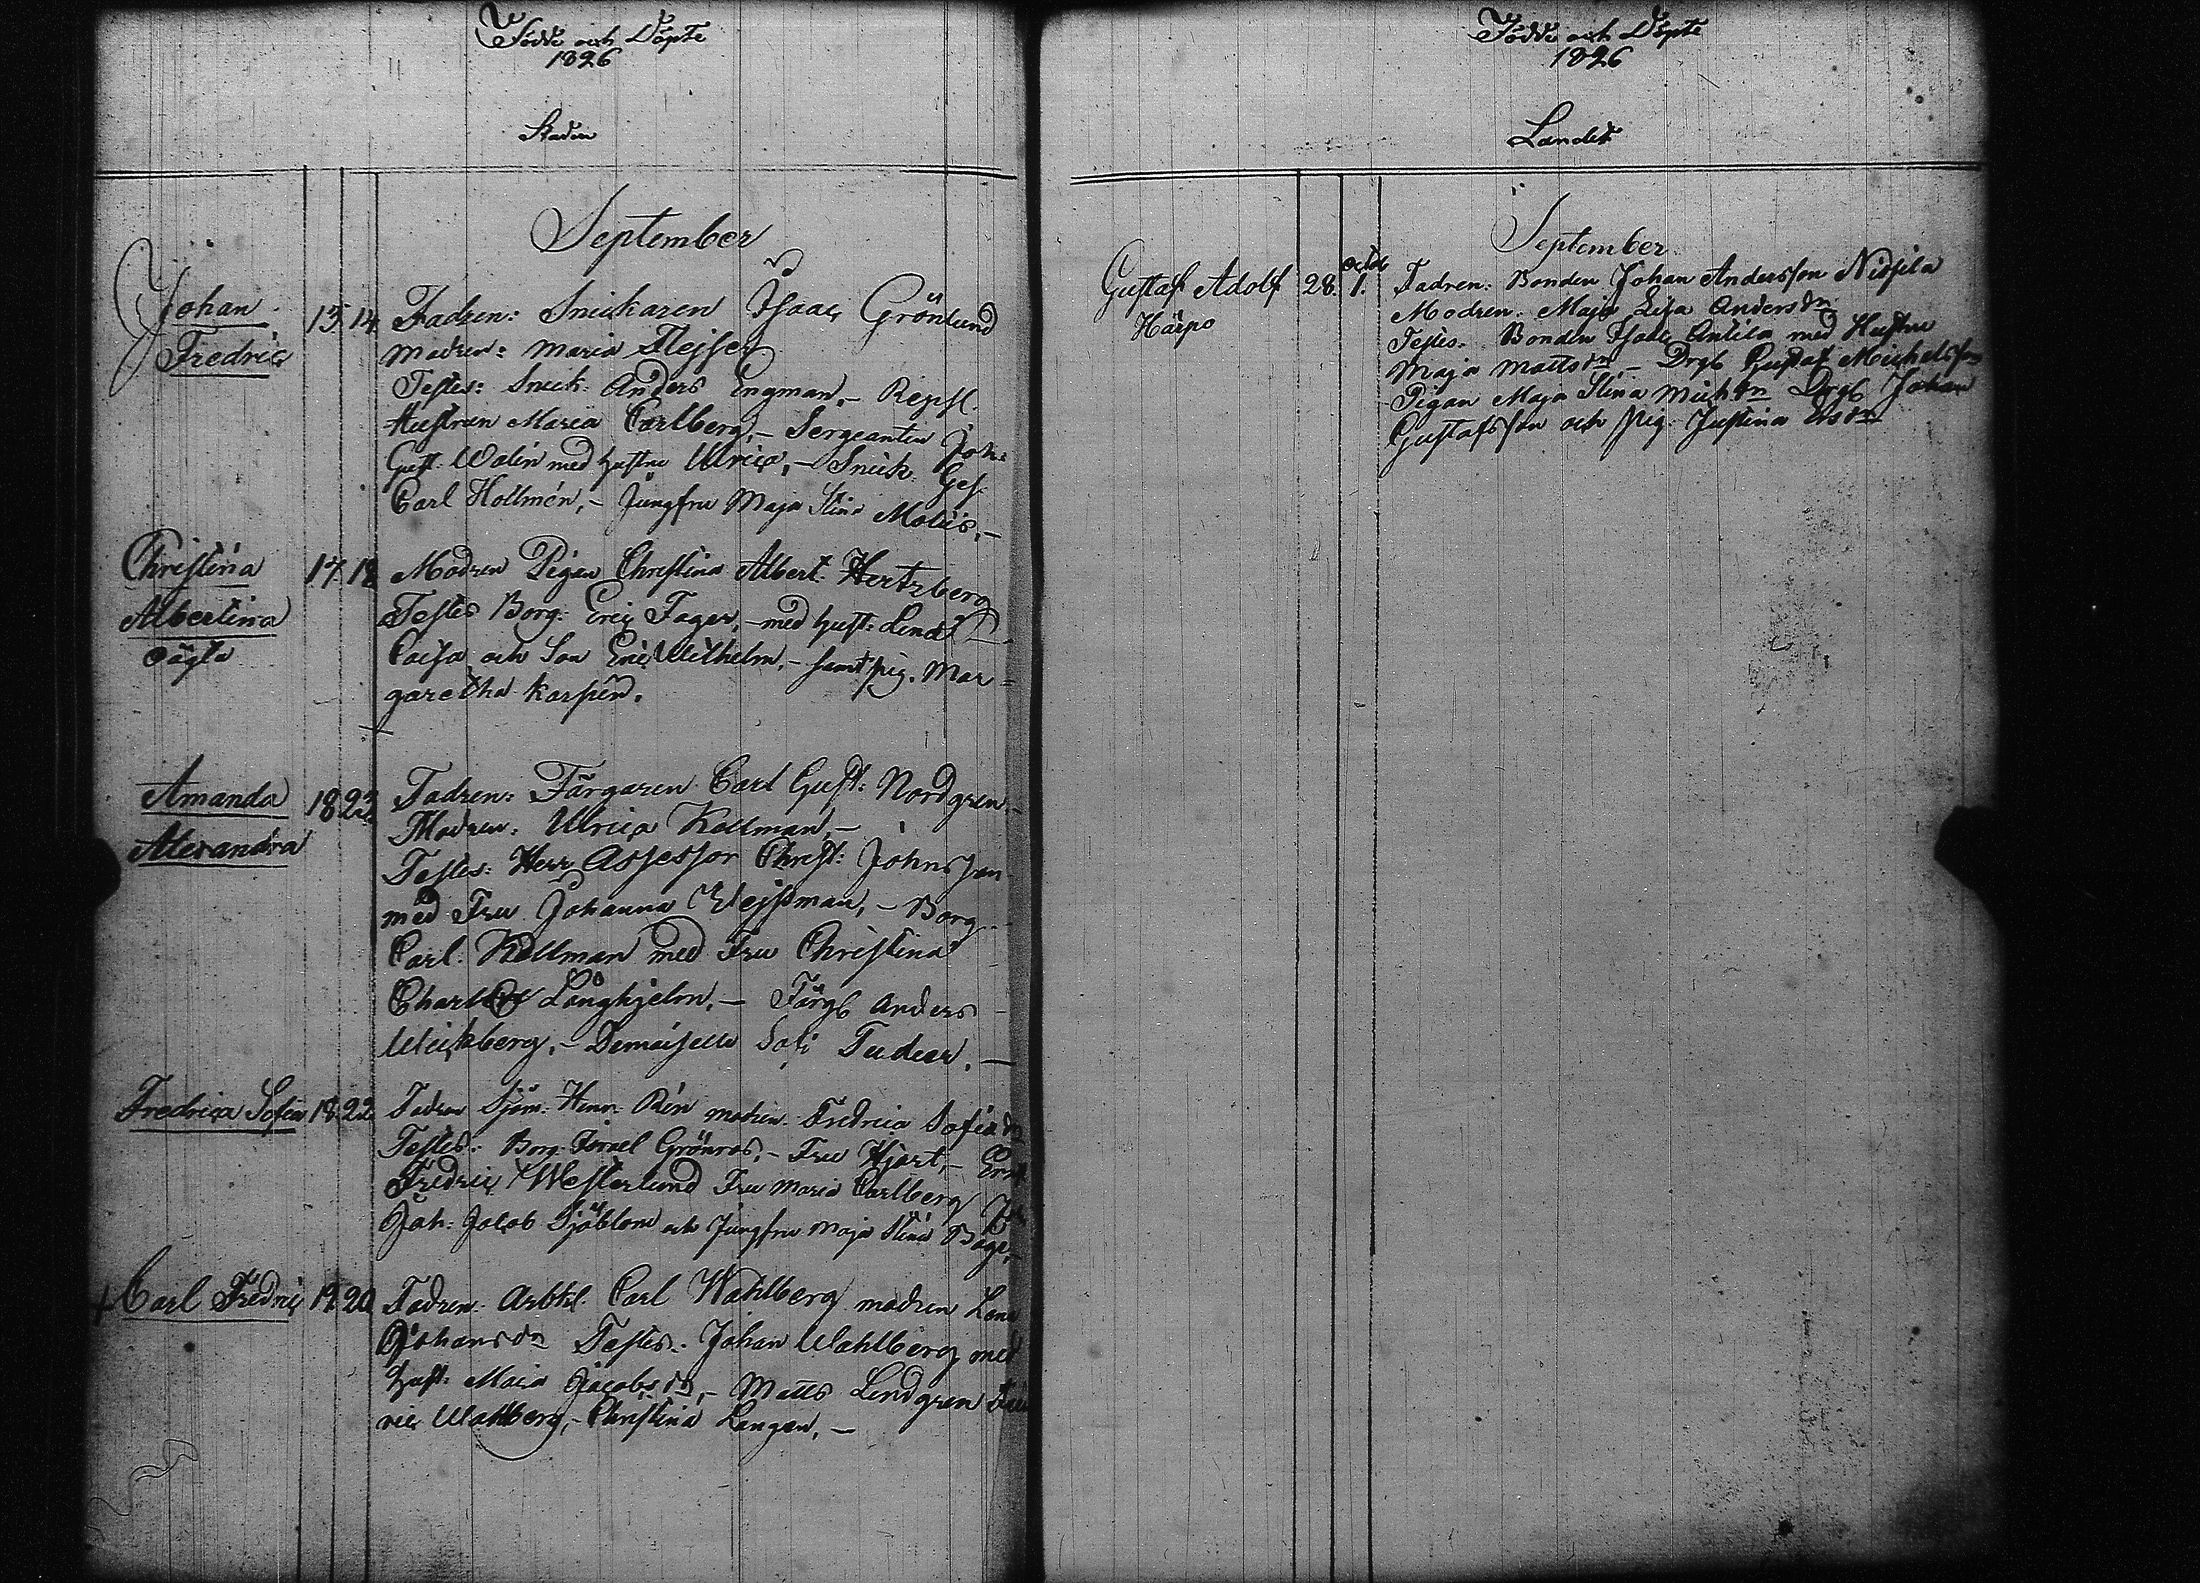 Födde och Döpte
1826
Staden
September
Johan
Fredric
13 14 Fadren: Snickaren Isaac Grönlund
Modren: Maria Flejser
Testes: Snick: Anders Engman,- Repsl.
Hustrun Maria Carlberg,- Sergeanten Joh:
Gust. Walin med hustru Ulrica,- Snick: Ges.
Carl Hollmén,- Jungfru Maja Stina
Christina
Albertina
oägta
17 18 Modren Pigan Christina Albert. Hertzberg
Testes Borg: Eric Fager,- med hust: Lena
Caisa och Son Eric Wilhelm,- samt pig. Mar=
garetha Karpén.
Amanda
Alexandra
18 23 Fadren: Färgaren Carl Gust: Nordgren,-
Modren: Ulrica Kellman,-
Testes: Herr Assessor Christ: Johnsson
med Fru Johanna,- Borg.
Carl Kellman med Fru Christina
Långhjelm,- Färgb Anders
Wickberg,- Demoiselle Sofi Tudeer.-
Fredrica Sofia 18 22 Fadren Sjöm: Henr: Rén modren: Fredrica Sofia
Testes: Borg: Israel Grönros,- Fru Hjort,-
Fredric Westerlund Fru Maria Carlberg
Joh: Jacob Sjöblom och Jungfru Maja Stina Båge,-
+ Carl Fredric 19 20 Fadren: Arbkl. Carl Wahlberg modren Lena
Johansdn Testes: Johan Wahlberg med
hust: Maja Jacobsdn,- Matts Lindgren
ric Wahlberg,- Christina Langen,-
Födde och Döpte
1826
Landet
September
Gustaf Adolf
Härpo
28. Octob 1. Fadren: Bonden Johan Andersson Nissila
Modren: Maja Lisa Andersdn
Testes: Bonden Isaac Antila med Hustru
Maja Mattsdn,- Drgb Gustaf Michelsson
Pigan Maja Stina Michdn Drgb Johan
Gustafsson och pig. Justina